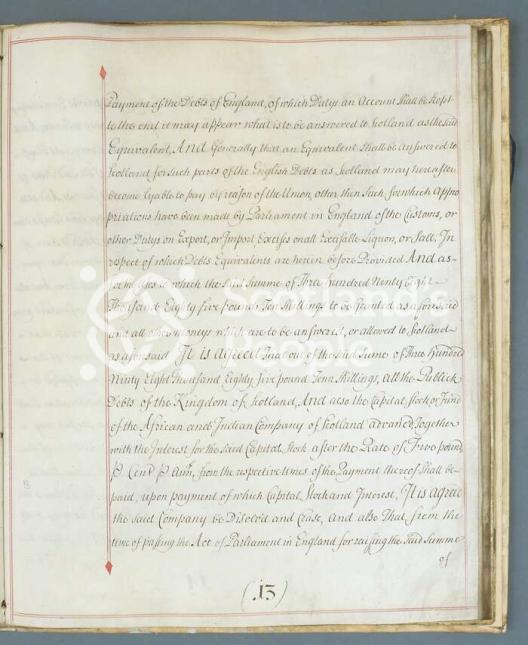 Payment of the Debts of England, of which Dutys an Account shall be kept
to the end it may appear what is to be answered to Scotland as the said
Equivalent, And Generally that an Equivalent shall be answered to
Scotland for such parts of the English Debts as Scotland may hereafter
become lyable to pay by reason of the Union, other then such, for which Appro
priations have been made by Parliament in England of the Customs, or
other Dutys on Export, or Import Excises on all Exciseable Liquors, or Salt, In
respect of which Debts Equivalents are herein before Provided And as
for the uses to which the said Summe of Three hundred Ninty Eight
Thousand Eighty five pound Ten Shillings to be Granted as aforsaid
and all other moneys which are to be answered, or allowed to Scotland
as aforsaid It is agreed That out of the said Sume of Three Hundred
Ninty Eight Thousand Eighty five pound Tenn Shillings, all the Publick
Debts of the Kingdom of Scotland, And also the Capital Stock or Fund
of the African and Indian Company of Scotland advanced Together
with the Interest for the said Capital Stock after the Rate of Five pound
℔ Cent ℔ Ann, from the respective times of the Payment thereof shall be
paid, upon payment of which Capital Stock and Interest, It is agreed
the said Company be Disolv'd and Cease, and also That from the
time of passing the Act of Parliament in England for raising the said Summe
of
(13)
Scotland's People